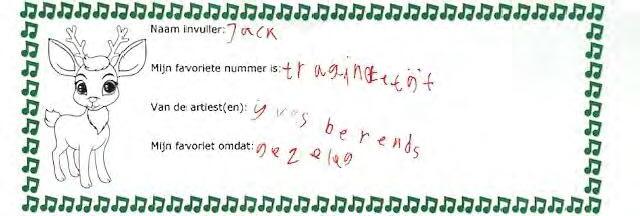 Naam invuller: Jack
Mijn favoriete nummer is: traginetijt
Van de artiest(en): yves berends
Mijn favoriet omdat: gezelag